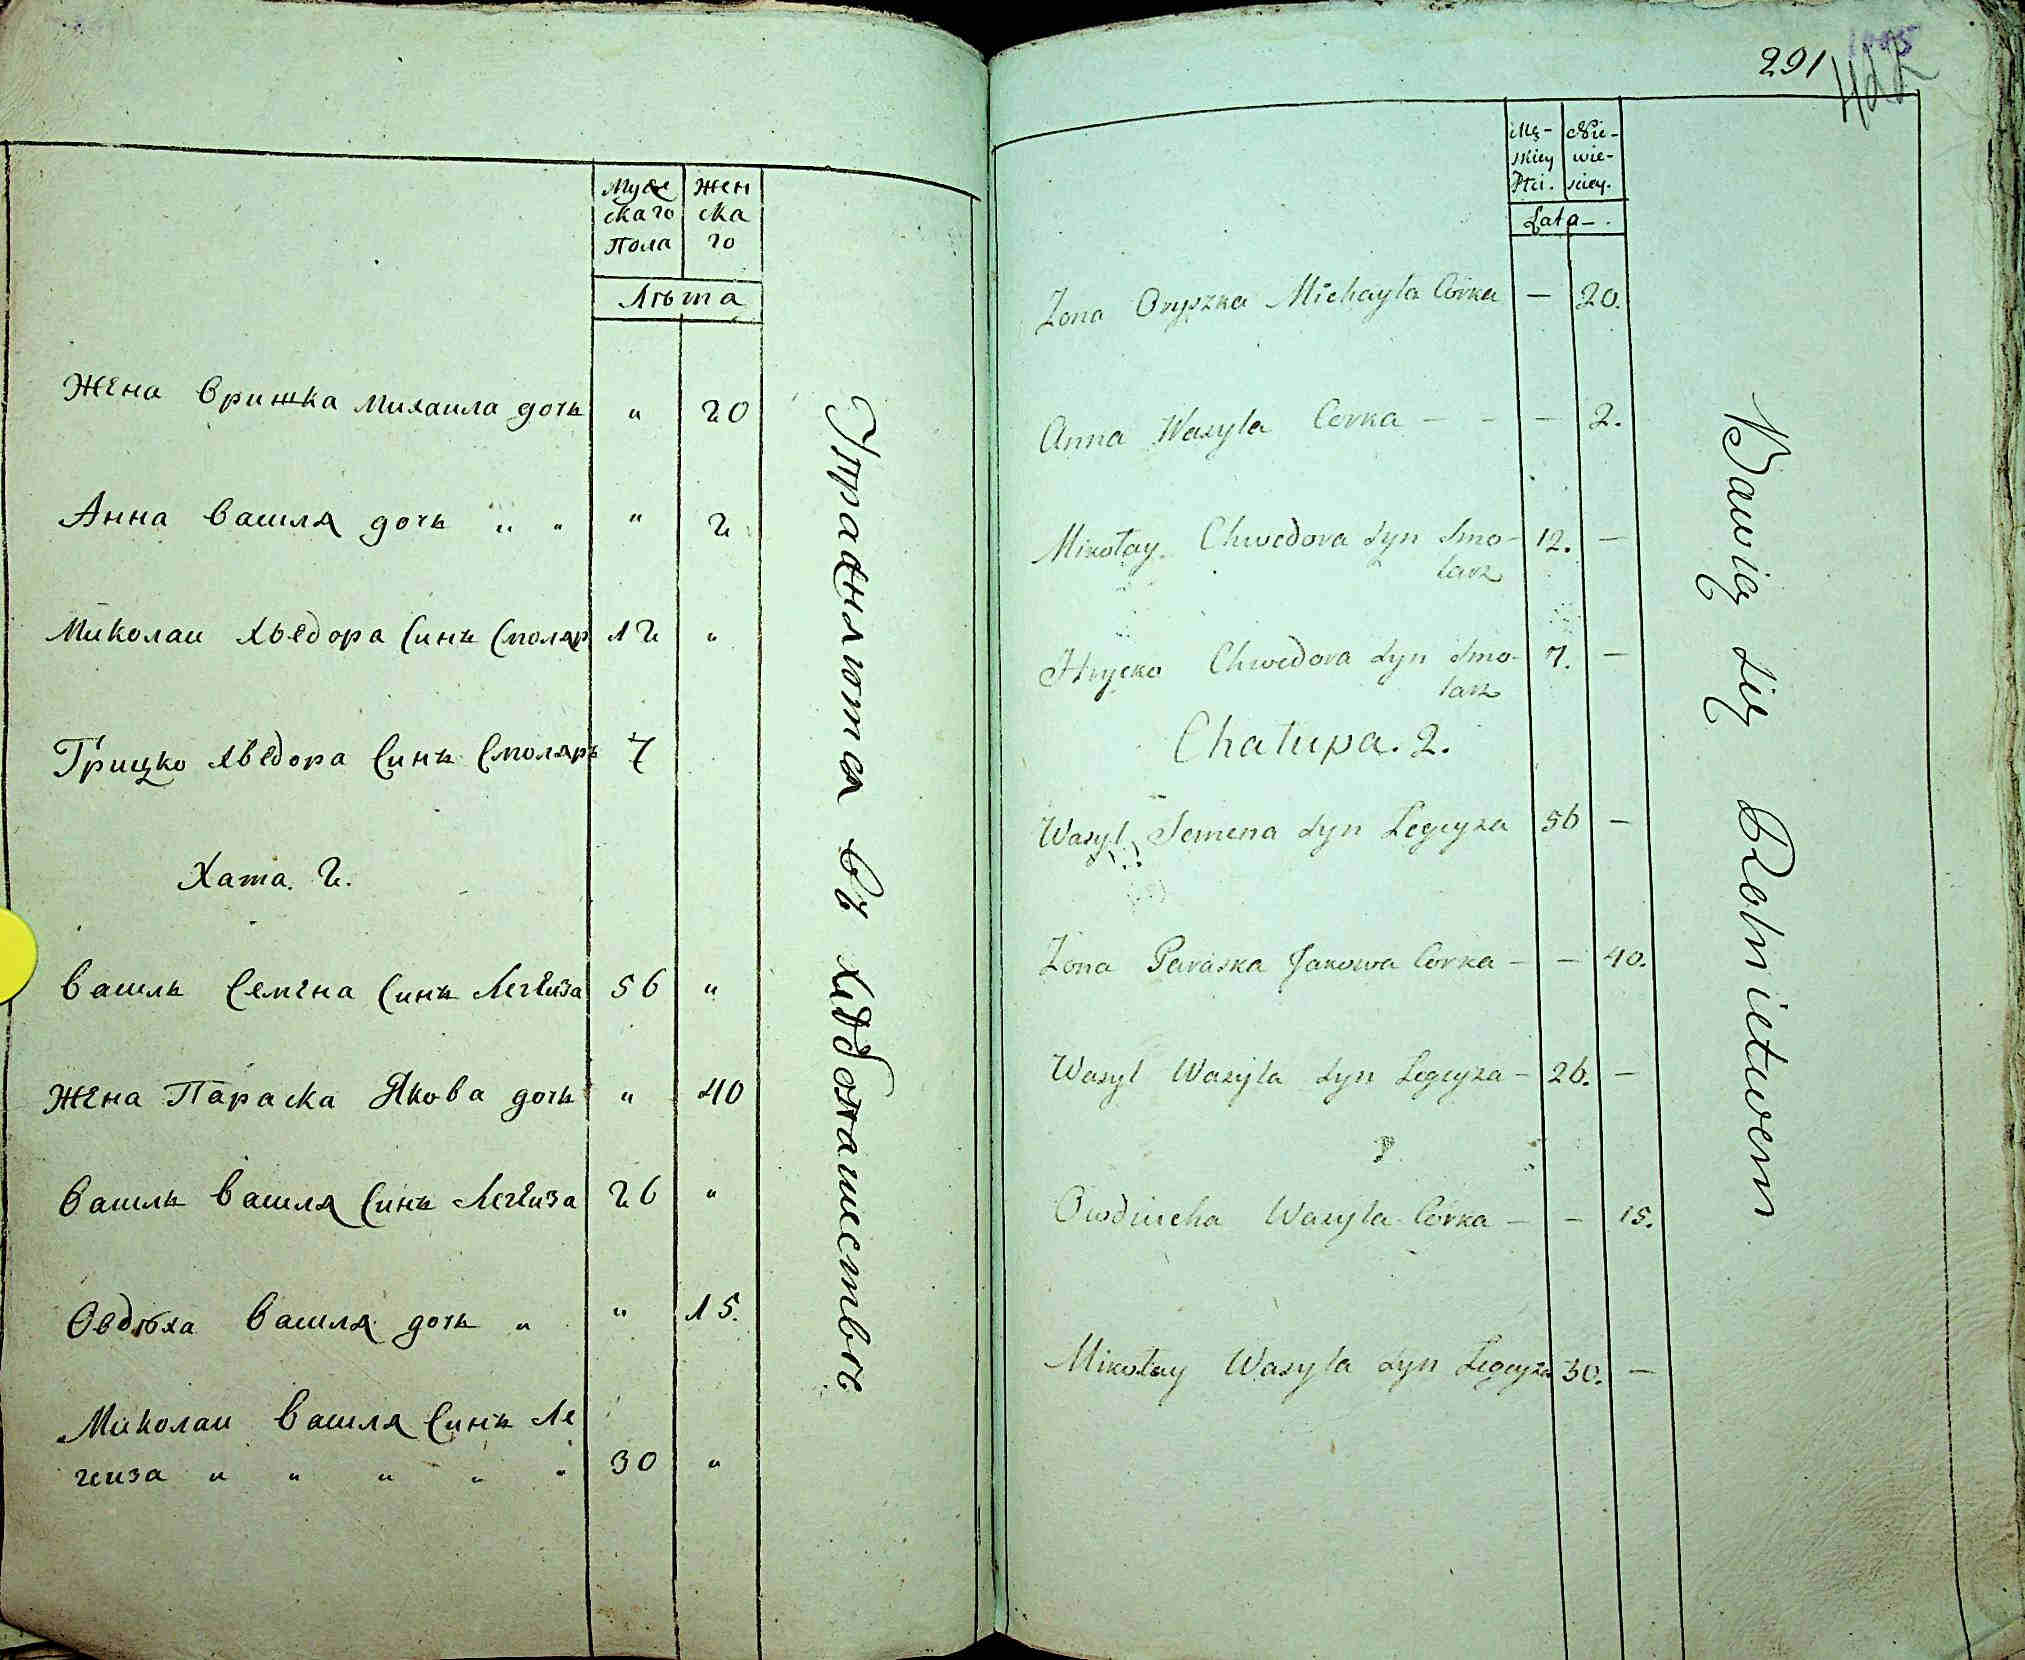 Муже
скаго
Пола
Жен
ска
го
Лѣта
Жена Оришка Михаила дочь " 20
Анна Василя дочь " " " 2
Миколаи Хведора Синъ Смоляръ 12 "
Грицко Хведора Синъ Смоляръ 7
Хата. 2.
Василь Семена Синъ Легеиза 56 "
Жена Параска Якова дочь " 40
Василь Василя Синъ Легеиза 26 "
Овдѣха Василя дочь " " 15.
Миколаи Василя Синъ Ле
геиза " " " " " 30 "
Упражняютса въ хлѣбопашествѣ
291
1005
422
Mę-
skiey
Płci.
Nie-
wie-
sciey.
Lata
Zona Oryszka Michayła Corka — 20.
Anna Wasyla Corka — — — 2.
Mikołay Chwedora Syn Smo- 12. —
larz
Hrycko Chwedora Syn Smo- 7. —
larz
Chałupa. 2.
Wasyl Semena Syn Legeyza 56 —
Zona Paraska Jakowa Corka — — 40.
Wasyl Wasyla Syn Legeyza — 26. —
Owdiucha Wasyla Corka — — 15.
Mikołay Wasyla Syn Legeyza 30. —
Bawią się Rolnictwem